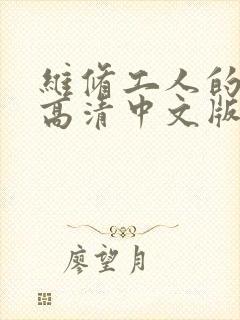 維脩工人的
高清中文版
廖望月